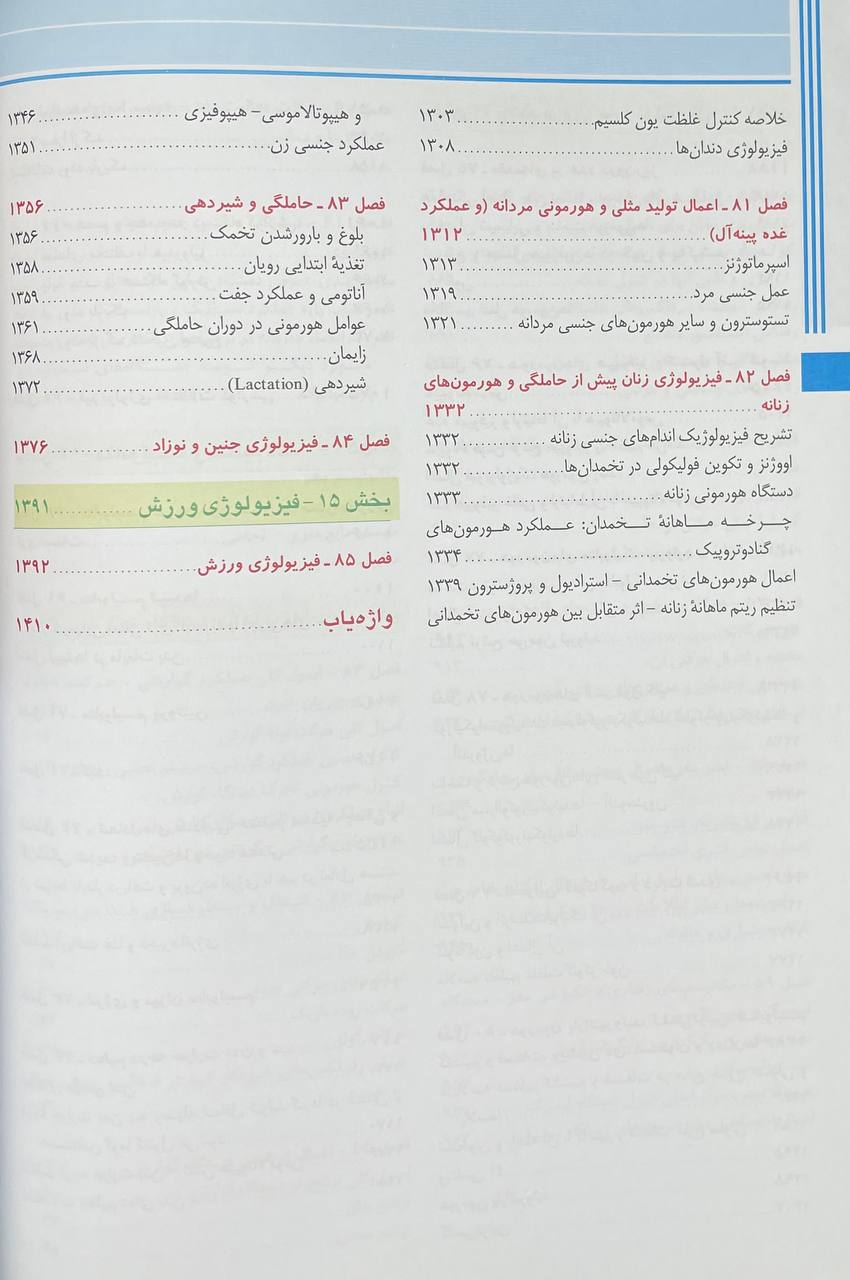 خلاصه کنترل غلظت یون کلسیم..........................۱۳۰۳
فیزیولوژی دندان‌ها..........................۱۳۰۸
فصل ۸۱ ـ اعمال تولید مثلی و هورمونی مردانه (و عملکرد
غده پینه‌آل) ..........................۱۳۱۲
اسپرماتوژنز..........................۱۳۱۳
عمل جنسی مرد..........................۱۳۱۹
تستوسترون و سایر هورمون‌های جنسی مردانه .........۱۳۲۱
فصل ۸۲ ـ فیزیولوژی زنان پیش از حاملگی و هورمون‌های
زنانه ..........................۱۳۳۲
تشریح فیزیولوژیک اندام‌های جنسی زنانه ..............۱۳۳۲
اووژنز و تکوین فولیکولی در تخمدان‌ها..............۱۳۳۲
دستگاه هورمونی زنانه ..........................۱۳۳۳
چـرخـه مـاهـانهٔ تـخمدان: عـملکرد هـورمون‌های
گنادوتروپیک ..........................۱۳۳۴
اعمال هورمون‌های تخمدانی – استرادیول و پروژسترون ۱۳۳۹
تنظیم ریتم ماهانهٔ زنانه – اثر متقابل بین هورمون‌های تخمدانی
و هیپوتالاموسی– هیپوفیزی ......................۱۳۴۶
عملکرد جنسی زن..........................۱۳۵۱
فصل ۸۳ ـ حاملگی و شیردهی ......................۱۳۵۶
بلوغ و بارورشدن تخمک..........................۱۳۵۶
تغذیهٔ ابتدایی رویان ..........................۱۳۵۸
آناتومی و عملکرد جفت ..........................۱۳۵۹
عوامل هورمونی در دوران حاملگی ..................۱۳۶۱
زایمان..........................۱۳۶۸
شیردهی (Lactation) ..........................۱۳۷۲
فصل ۸۴ ـ فیزیولوژی جنین و نوزاد ................۱۳۷۶
بخش ۱۵ – فیزیولوژی ورزش ..............۱۳۹۱
فصل ۸۵ ـ فیزیولوژی ورزش ......................۱۳۹۲
واژه‌یاب..........................۱۴۱۰